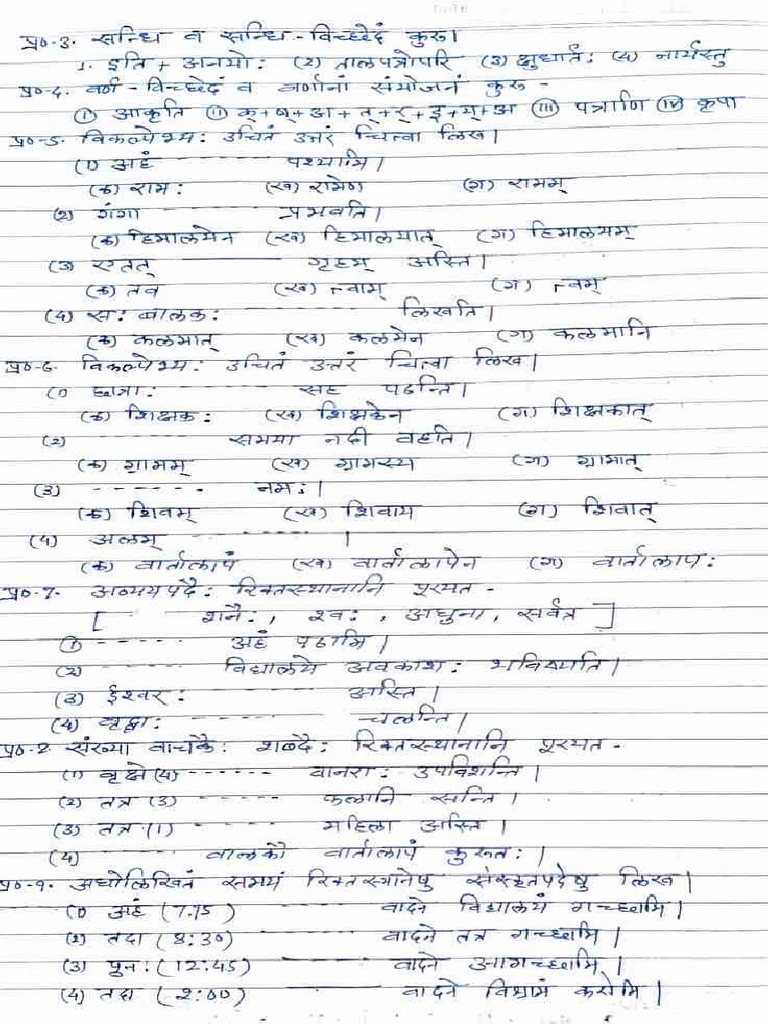 प्र०-3. सन्धि व सन्धि-विच्छेदं कुरु।
1. इति + अनयोः (2) तालपत्रोपरि (3) क्षुधार्तः (4) नार्यस्तु
प्र०-4. वर्ण-विच्छेदं व वर्णानां संयोजनं कुरु -
(i) आकृति (ii) क्+ष्+अ+त्+र्+इ+य्+अ (iii) पत्राणि (iv) कृपा
प्र०-5. विकल्पेभ्यः उचितं उत्तरं चित्वा लिख।
(1) अहं ------- पश्यामि।
(क) रामः (ख) रामेण (ग) रामम्
(2) गंगा ------- प्रभवति।
(क) हिमालयेन (ख) हिमालयात् (ग) हिमालयम्
(3) एतत् ------- गृहम् अस्ति।
(क) तव (ख) त्वाम् (ग) त्वम्
(4) सः बालकः ------- लिखति।
(क) कलमात् (ख) कलमेन (ग) कलमानि
प्र०-6. विकल्पेभ्यः उचितं उत्तरं चित्वा लिख।
(1) छात्राः ------- सह पठन्ति।
(क) शिक्षकः (ख) शिक्षकेन (ग) शिक्षकात्
(2) ------- समया नदी वहति।
(क) ग्रामम् (ख) ग्रामस्य (ग) ग्रामात्
(3) ------- नमः।
(क) शिवम् (ख) शिवाय (ग) शिवात्
(4) अलम् -------।
(क) वार्तालापं (ख) वार्तालापेन (ग) वार्तालापः
प्र०-7. अव्ययपदैः रिक्तस्थानानि पूरयत -
[ शनैः, श्वः, अधुना, सर्वत्र ]
(1) ------- अहं पठामि।
(2) ------- विद्यालये अवकाशः भविष्यति।
(3) ईश्वरः ------- अस्ति।
(4) वृद्धाः ------- चलन्ति।
प्र०-8 संख्या वाचकैः शब्दैः रिक्तस्थानानि पूरयत -
(1) वृक्षे (4) ------- वानराः उपविशन्ति।
(2) तत्र (3) ------- फलानि सन्ति।
(3) तत्र (1) ------- महिला अस्ति।
(4) ------- बालकौ वार्तालापं कुरुतः।
प्र०-9. अधोलिखितं समयं रिक्तस्थानेषु संस्कृतपदेषु लिख।
(1) अहं (7.15) ------- वादने विद्यालयं गच्छामि।
(2) तदा (8:30) ------- वादने तत्र गच्छामि।
(3) पुनः (12:45) ------- वादने आगच्छामि।
(4) तदा (2:00) ------- वादने विश्रामं करोमि।